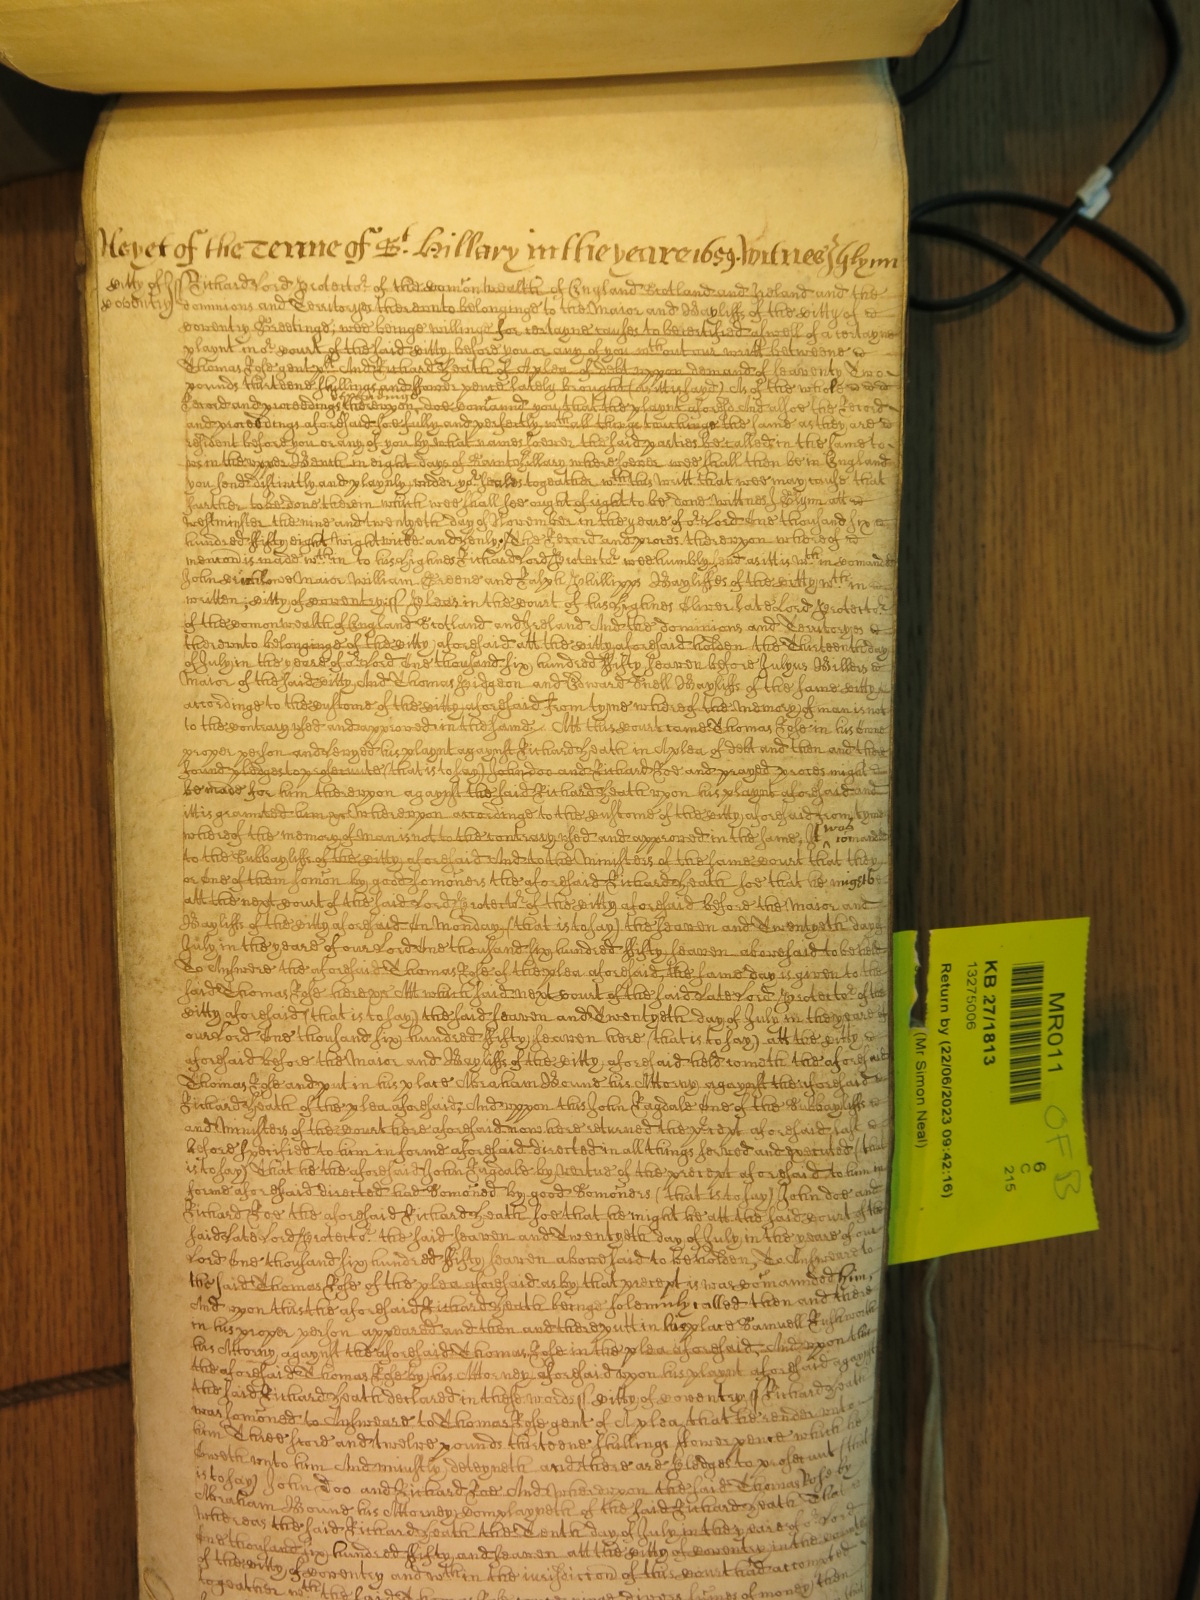 As yet of the Terme of St. Hillary in the yeare 1659. Witnes J Glynn
Citty of Coventry ss Richard Lord Protector of the Comonwealth of England Scotland and Ireland and the
dominions and Territoryes thereunto belonginge to the Maior and Bayliffs of the Citty of
Coventry Greetinge, wee beinge willinge for certayne causes to be certified aswell of a certayne
playnt in or Court of the said Citty before you or any of you wthout our writt betweene
Thomas Rose gent plt. And Richard Heath of A plea of debt uppon demand of seaventy Two
pounds thirteene shillings and fower pence lately brought (as itt is said) As of the whole
Record and proceedings thereupon dependinge, doe Comannd you that the playnt aforesd And alsoe the Record
and proceedings aforesaid soe fully and perfectly wth all things touchinge the same as they are
resident before you or any of you by what names soever the said parties be called in the same to
us in the upper Bench in eight days of Saint Hillary wheresoever wee shall then be in England
you send distinctly and playnly under yor seales togeather wth this writt that wee may cause that
further to be done therein which wee shall see ought of right to be done. Wittnes J Glynn att
Westminster the nine and twentyeth day of November in the yeare of or Lord One thousand six
hundred fifty eight Wightwicke and Henly. The Record and proces thereupon whereof
mencon is made wth in to his Highnes Richard Lord Protector wee humbly send as itt is wth in Comanded
John Maior William Greene and Ralph Phillipps Bayliffes of the Citty wth in
written. Citty of Coventry ss Pleas in the Court of his Highnes Oliver late Lord Protector
of the Comonwealth of England Scotland and Ireland And the Dominions and Territoryes
thereunto belonginge of the Citty aforesaid att the Citty aforesaid holden the Thirteenth day
of July in the yeare of or Lord One thousand six hundred fifty seaven before Julyus Billers
Maior of the said Citty And Thomas Pidgeon and Edward Owell Bayliffs of the same Citty
accordinge to the Custome of the Citty aforesaid from tyme whereof the Memory of man is not
to the Contrary used and approved in the same. Att this Court came Thomas Rose in his owne
proper person and levyed his playnt agaynst Richard Heath in A plea of debt and then and there
found pledges to prosecute (that is to say) John doo and Richard Roe and prayed proces might
be made for him thereupon agaynst the said Richard Heath upon his playnt aforesaid and
itt is graunted him &c Whereupon accordinge to the Custome of the Citty aforesaid from tyme
whereof the memory of Man is not to the contrary used and approved in the same, It was Comanded
to the Subbayliffs of the Citty aforesaid And to the Ministers of the same Court that they
or One of them somon by good somoners the aforesaid Richard Heath soe that he might be
att the next Court of the said Lord Protector of the Citty aforesaid before the Maior and
Bayliffs of the Citty aforesaid On Monday (that is to say) the seaven and Twentyeth day of
July in the yeare of our Lord One thousand six hundred fifty seaven abovesaid to be held
To Answere the aforesaid Thomas Rose of the plea aforesaid, the same day is given to the
said Thomas Rose here &c Att which said next Court of the said Late Lord Protector of the
Citty aforesaid (that is to say) the said seaven and Twentyeth day of July in the yeare of
our Lord One thousand six hundred fifty seaven here (that is to say) att the Citty
aforesaid before the Maior and Bayliffs of the Citty aforesaid held cometh the aforesaid
Thomas Rose and put in his place Abraham Boune his Attorny agaynst the aforesaid
Richard Heath of the plea aforesaid, And uppon this John Ragdale One of the Subbayliffs
and Ministers of the Court here aforesaid now here returned the precept aforesaid last
before specified to him in forme aforesaid directed in all things served and executed (that
is to say) That he the aforesaid John Ragdale by vertue of the precept aforesaid to him in
forme aforesaid directed had Somoned by good Somoners (that is to say) John doe and
Richard Roe the aforesaid Richard Heath soe that he might be att the said Court of the
said late Lord Protector the said seaven and Twentyeth day of July in the yeare of our
Lord One thousand six hundred fifty seaven abovesaid to be holden, To Answeare to
the said Thomas Rose of the plea aforesaid as by that precept is was Comannded him,
And upon this the aforesaid Richard Heath beinge solemnly called then and there
in his proper person appeared and then and there putt in his place Samuell Rushworth
his Attorny agaynst the aforesaid Thomas Rose in the plea aforesaid, And upon this
the aforesaid Thomas Rose by his Attorney aforesaid upon his playnt aforesaid agaynst
the said Richard Heath declared in these words ss Citty of Coventry ss Richard Heath
was somoned to Answeare to Thomas Rose gent of A plea that he render unto
him Three score and twelve pounds thirteene shillings fower pence which he
Oweth unto him And uniustly deteyneth and there are pledges to prosecut (that
is to say) John Doo and Richard Roe And Whereupon the said Thomas Rose by
Abraham Boune his Attorney complayneth of the said Richard Heath That
Whereas the said Richard Heath the Tenth day of July in the yeare of or Lord
One thousand six hundred fifty and seaven att the Citty of Coventry in the County
of the Citty of Coventry and wth in the iurisdiccon of this Court had accompted
togeather wth the said divers summes of money then
MR011
6
C
215
KB 27/1813
13275006
Return by (22/06/2023 09:42:16)
(Mr Simon Neal)
OFB